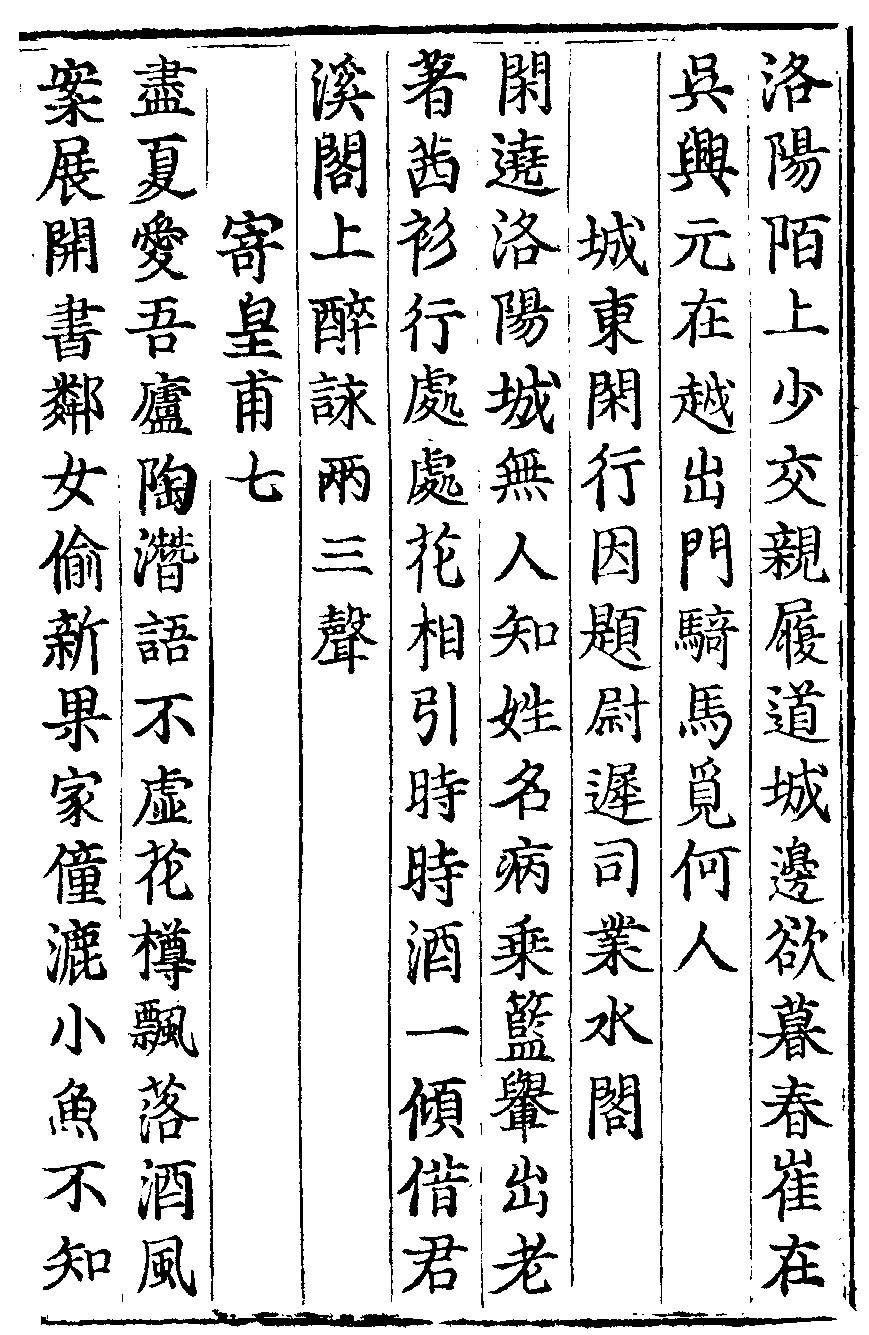 洛陽陌上少交親履道城邊欲暮春崔在
吳興元在越出門騎馬覓何人
城東閑行因題尉遲司業水閣
閑遶洛陽城無人知姓名病乗籃轝出老
著茜衫行處處花相引時時酒一傾借君
溪閣上醉詠兩三聲
寄皇甫七
盡夏愛吾廬陶潛語不虛花樽飄落酒風
案展開書鄰女偷新果家僮漉小魚不知